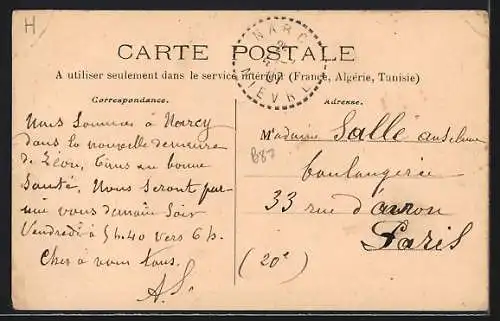 H
NARCY
NIÈVRE
CARTE POSTALE
A utiliser seulement dans le service intérieur (France, Algérie, Tunisie)
Correspondance.
Adresse.
Nous sommes à Narcy
dans la nouvelle demeure
de Léon, tous en bonne
Santé, Nous Seront par-
mie vous demain Soir
Vendredi à 5h.40 vers 6h.
Cher à vous tous.
A.S.
Madame Sallé anselme
boulangerie
33 rue d'avron
Paris
(20e)